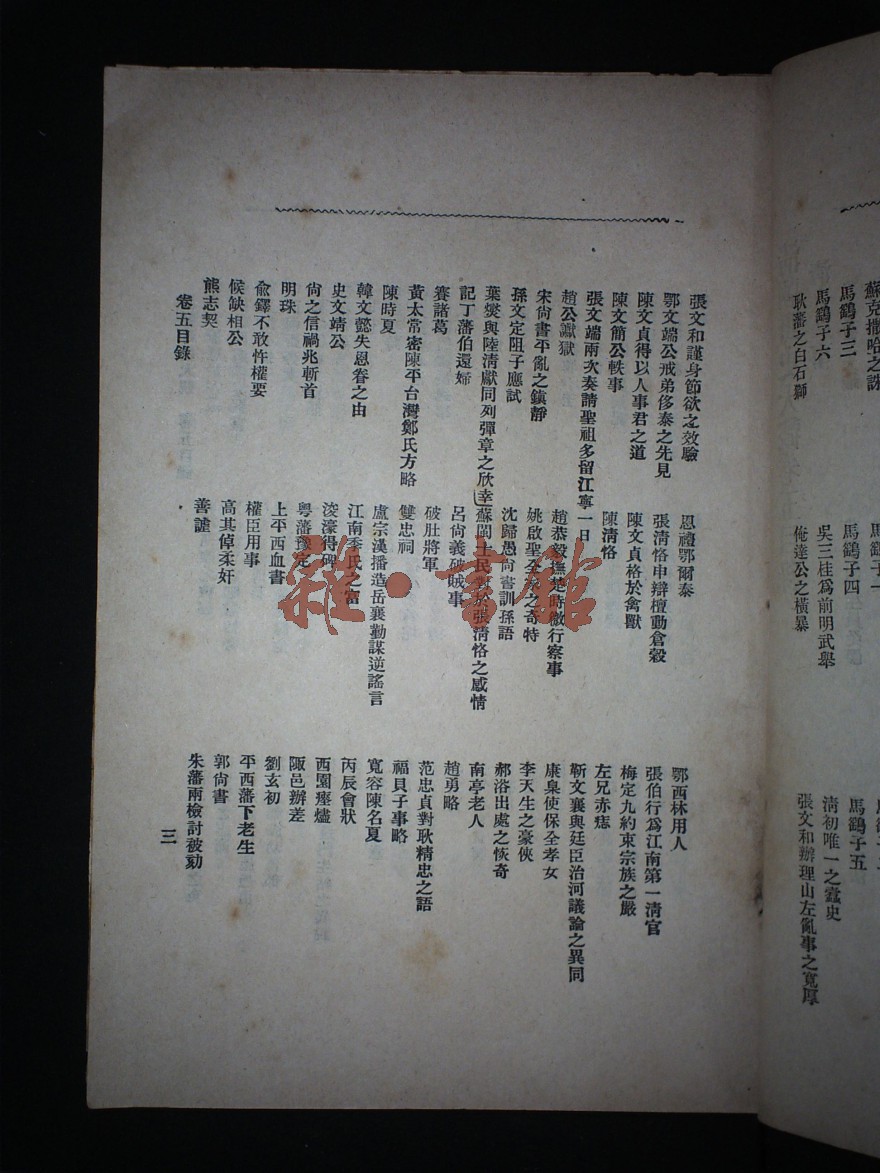 蘇克撒哈之誅
馬鷂子一
馬鷂子三
馬鷂子四
馬鷂子五
馬鷂子六
吳三桂爲前明武舉
清初唯一之蠹史
耿藩之白石獅
俺達公之橫暴
張文和辦理山左亂事之寬厚
張文和謹身節欲之效驗
恩禮鄂爾泰
鄂西林用人
鄂文端公戒弟侈泰之先見
張清恪申辯擅動倉穀
張伯行爲江南第一清官
陳文貞得以人事君之道
陳文貞格於禽獸
梅定九約束宗族之嚴
陳文簡公軼事
陳清恪
左兄赤痣
張文端兩次奏請聖祖多留江寧一日
靳文襄與廷臣治河議論之異同
趙公讞獄
趙恭毅撫楚時微行察事
康臬使保全孝女
宋尙書平亂之鎭靜
姚啟聖全家之奇特
李天生之豪俠
孫文定阻子應試
沈歸愚尙書訓孫語
郝浴出處之恢奇
葉燮與陸清獻同列彈章之欣幸
蘇閩士民對於張清恪之感情
南亭老人
記丁藩伯還婦
呂尙義破賊事
趙勇略
賽諸葛
破肚將軍
范忠貞對耿精忠之語
黃太常密陳平台灣鄭氏方略
雙忠祠
福貝子事略
陳時夏
盧宗漢播造岳襄勤謀逆謠言
寬容陳名夏
韓文懿失恩眷之由
江南季氏之富
丙辰會狀
史文靖公
浚濠得碑
西園瘞燼
尙之信禍兆斬首
粤藩豫定
陬邑辦差
明珠
上平西血書
劉玄初
兪鐸不敢忤權要
權臣用事
平西藩下老生
候缺相公
高其倬柔奸
郭尙書
熊志契
善謔
朱藩雨檢討被劾
卷五目錄
三
雜·書館